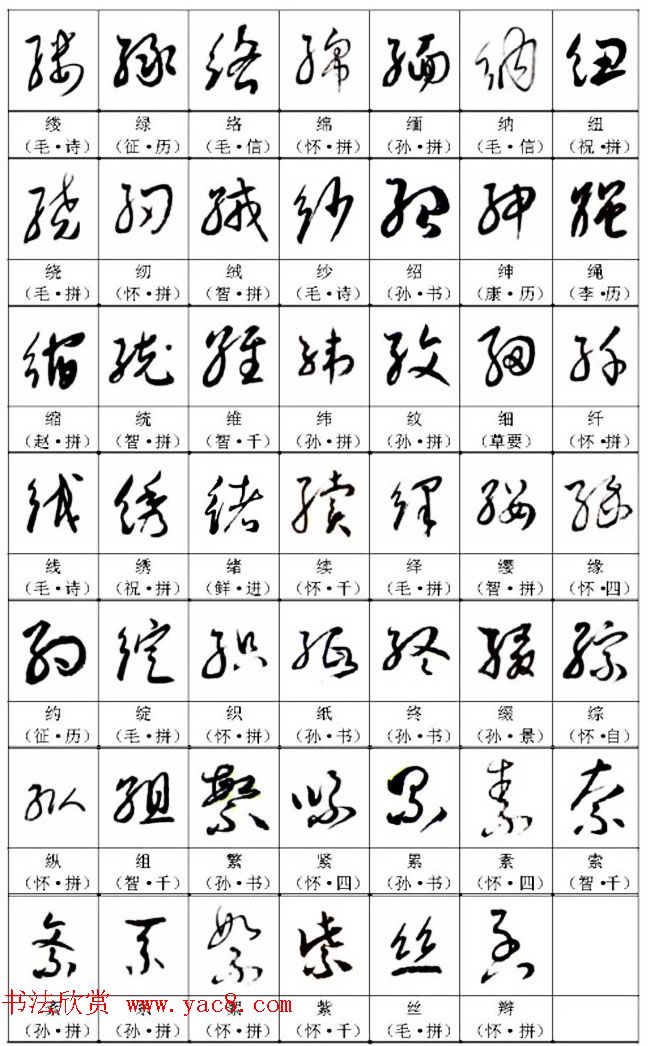 缕 绿 络 绵 缅 纳 纽
(毛·诗) (征·历) (毛·信) (怀·拼) (孙·拼) (毛·信) (祝·拼)
绕 纫 绒 纱 绍 绅 绳
(毛·拼) (怀·拼) (智·拼) (毛·诗) (孙·书) (康·历) (李·历)
缩 统 维 纬 纹 细 纤
(赵·拼) (智·拼) (智·千) (孙·拼) (孙·拼) (草要) (怀·拼)
线 绣 绪 续 绎 缨 缘
(毛·诗) (祝·拼) (鲜·进) (怀·千) (毛·拼) (智·拼) (怀·四)
约 绽 织 纸 终 缀 综
(征·历) (毛·拼) (怀·拼) (孙·书) (孙·书) (孙·景) (怀·自)
纵 组 繁 紧 累 素 索
(怀·拼) (智·千) (孙·书) (怀·四) (孙·书) (怀·四) (智·千)
书法欣赏 www.yac8.com
紊 絮 紫 丝 辫
(孙·拼) (孙·拼) (怀·拼) (怀·千) (毛·拼) (怀·拼)